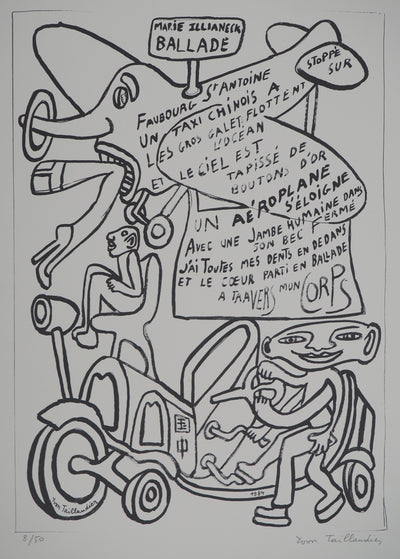 MARIE ILLBANECK
BALLADE
STOPPÉ
SUR
FAUBOURG St ANTOINE
UN TAXI CHINOIS A
LES GROS GALET FLOTTENT
L'OCEAN
ET LE CIEL EST
TAPISSÉ DE
BOUTONS D'OR
UN AÉROPLANE
S'ÉLOIGNE
AVEC UNE JAMBE HUMAINE DANS
SON BEC FERMÉ
J'AI TOUTES MES DENTS EN DEDANS
ET LE CŒUR PARTI EN BALLADE
A TRAVERS MON CORPS
玉
中
1984
Yvon Taillandier
8/50
Yvon Taillandier